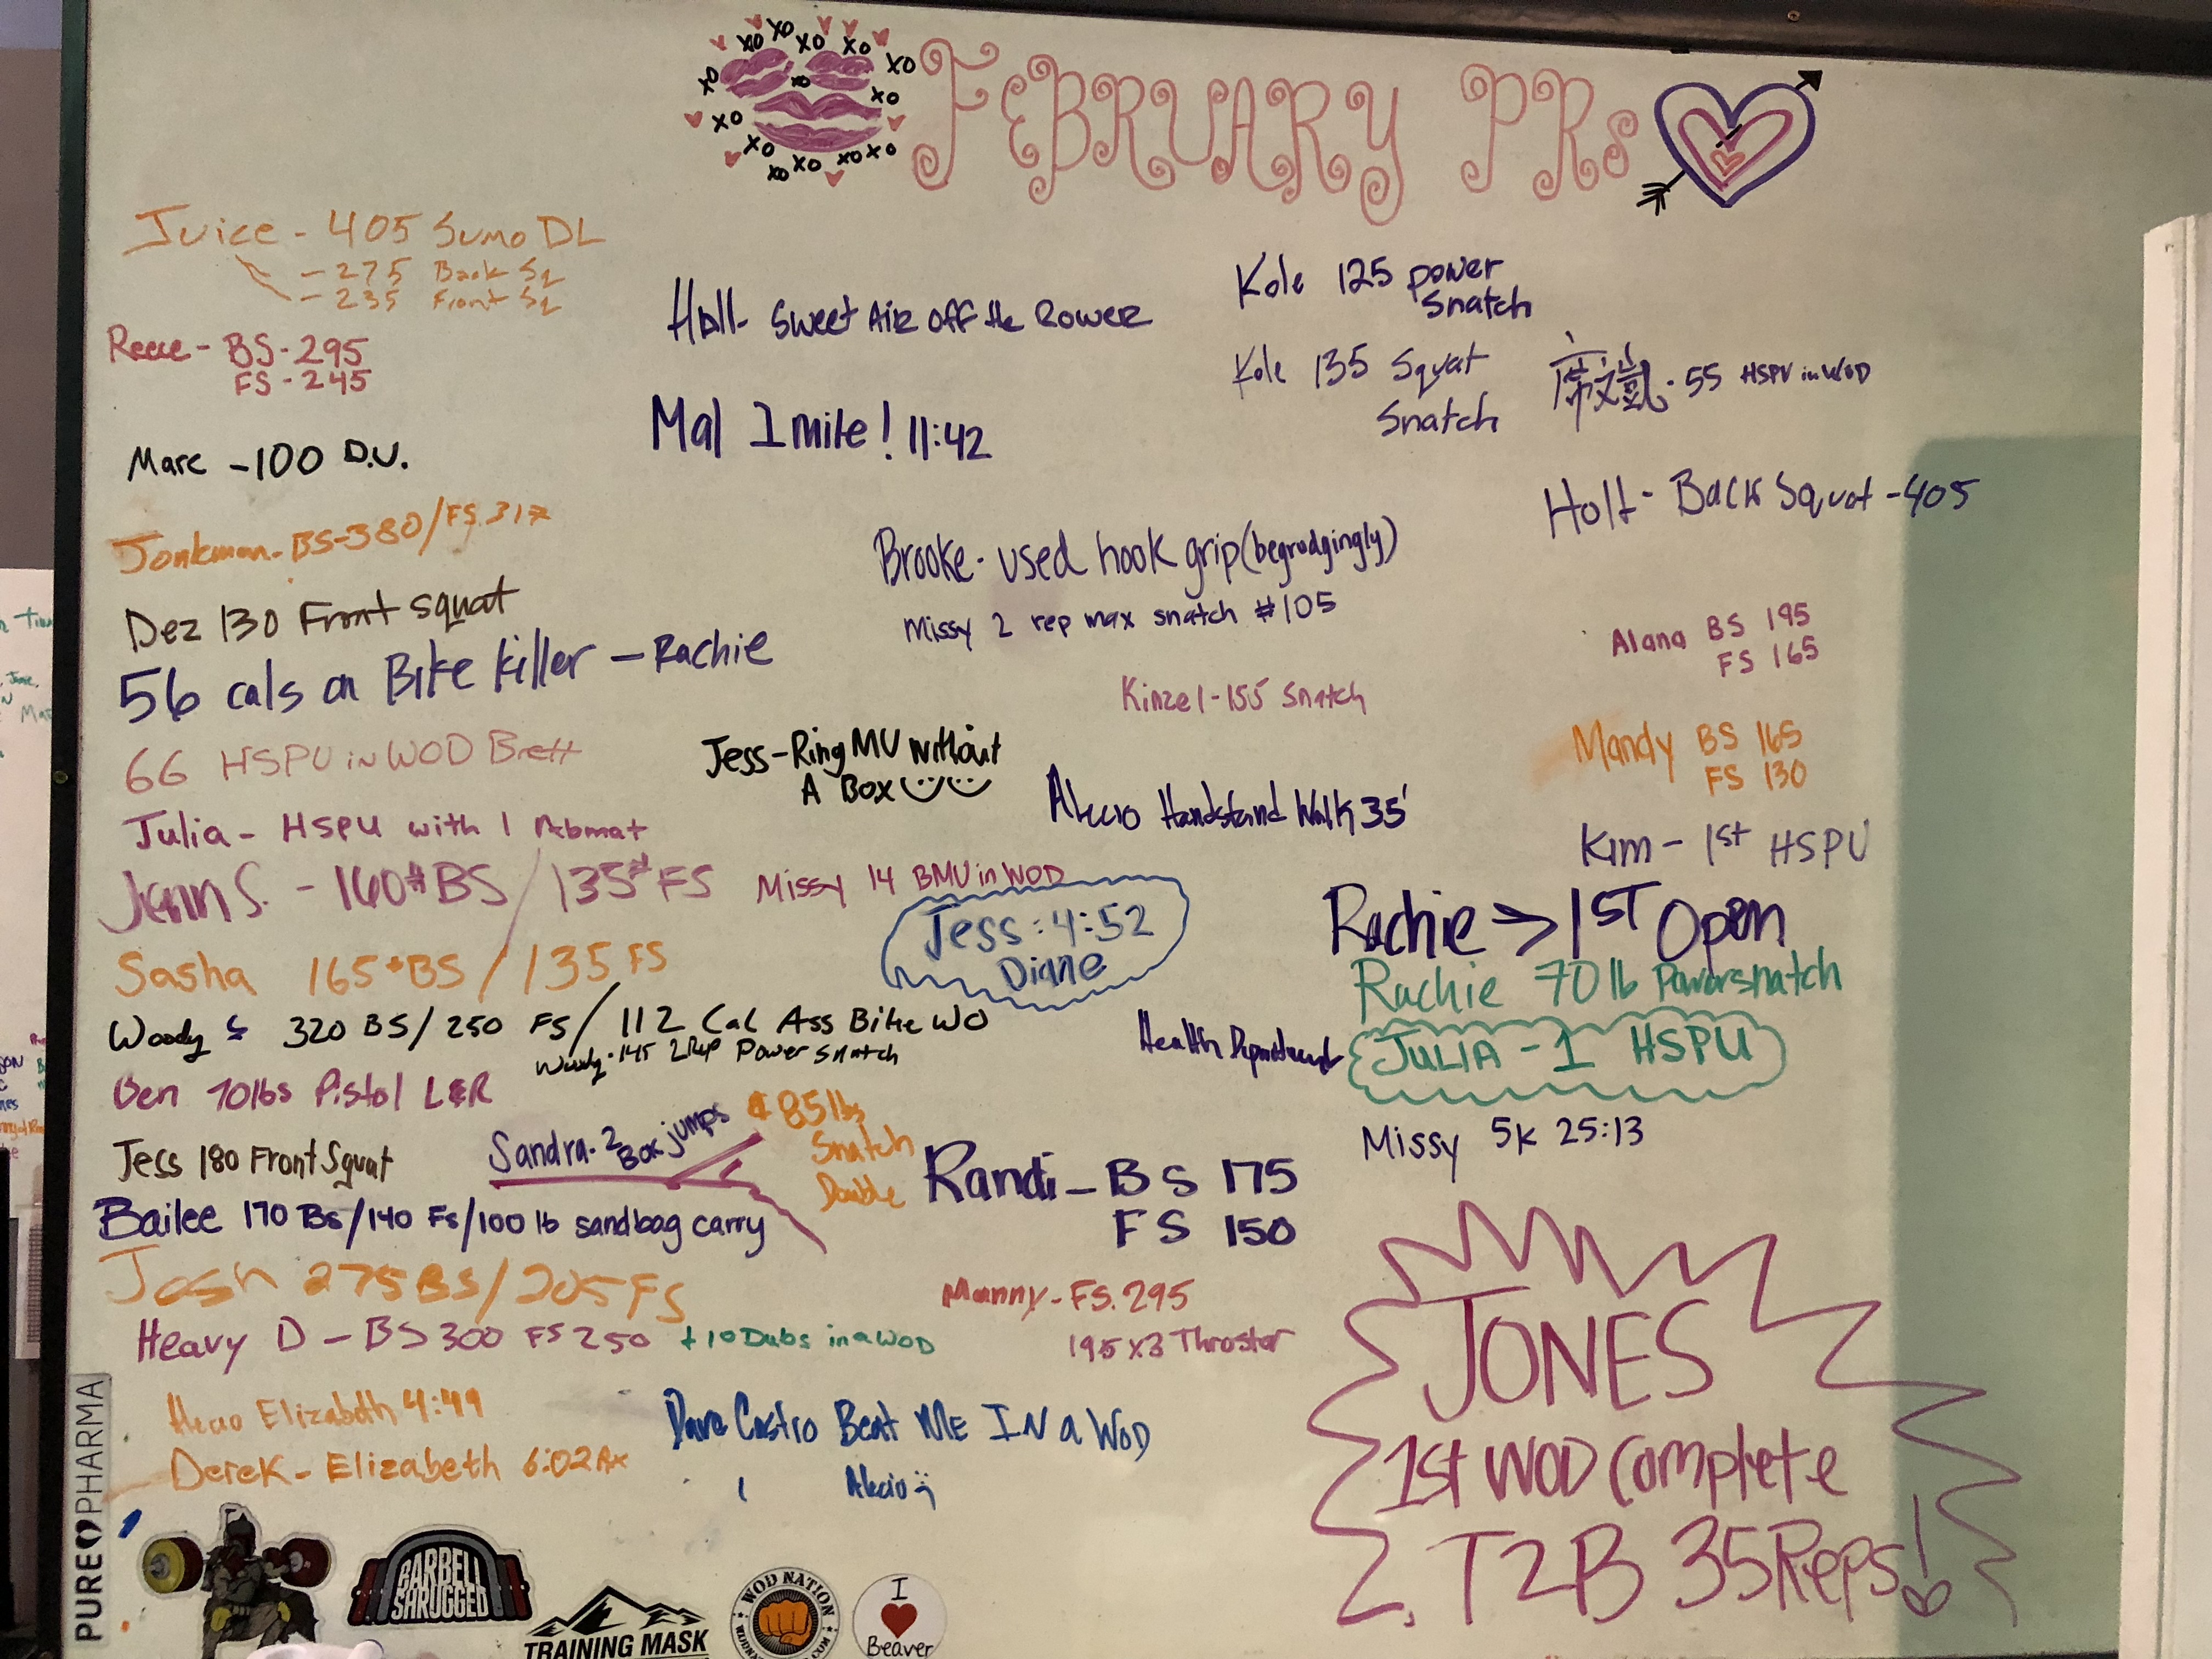 FEBRUARY PRs
XO XO XO XO XO XO XO XO XO XO XO XO XO XO XO
Juice - 405 Sumo DL
- 275 Back Sq
- 235 Front Sq
Reece - BS - 295
FS - 245
Marc - 100 D.U.
Jonkman - BS-380/FS 317
Dez 130 Front squat
56 cals on Bike Killer - Rachie
66 HSPU in WOD Brett
Julia - HSPU with 1 Abmat
Jenn S. - 160# BS / 135# FS
Sasha 165# BS / 135 FS
Woody 320 BS / 250 FS / 112 Cal Ass Bike WO
Woody - 145 2 Rep Power Snatch
Ben 70lbs Pistol L&R
Jess 180 Front Squat
Sandra - 2 Box jumps
& 85 lbs
Snatch
Double
Bailee 170 Bs/140 Fs/100 lb sandbag carry
Josh 275 BS/205 FS
Heavy D - BS 300 FS 250 + 10 Dubs in a WOD
Elizabeth 4:49
Derek - Elizabeth 6:02 Rx
Holt - Sweet Air off the Rower
Mal 1 mile! 11:42
Brooke - used hook grip (begrudgingly)
Missy 2 rep max snatch #105
Kinzel - 155 Snatch
Jess - Ring MU without
A Box
Alecio Handstand Walk 35'
Missy 14 BMU in WOD
Jess : 4:52
Diane
Health Department
Randi - BS 175
FS 150
Manny - FS. 295
195 x 3 Thruster
Dave Castro Beat ME IN a WOD
Alecio
Kole 125 power
Snatch
Kole 135 Squat
Snatch
55 HSPU in WOD
Holt - Back Squat - 405
Alana BS 195
FS 165
Mandy BS 165
FS 130
Kim - 1st HSPU
Rachie > 1ST Open
Rachie 70 lb Powersnatch
JULIA - 1 HSPU
Missy 5K 25:13
JONES
1st WOD Complete
T2B 35 Reps!
PURE PHARMA
BARBELL
SHRUGGED
TRAINING MASK
WOD NATION
I
Beaver